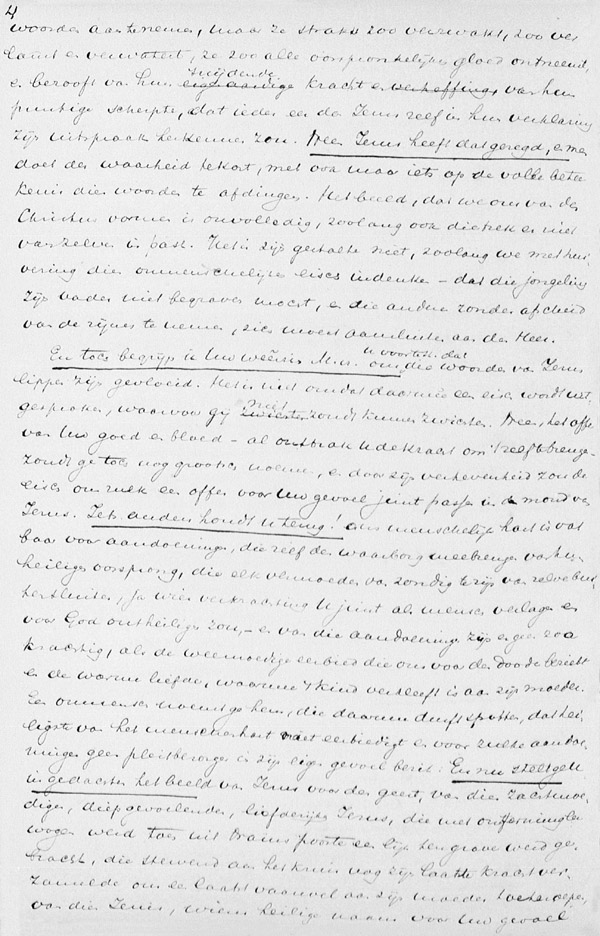 4
woorden aan te nemen, maar ze straks zoo verzwakt, zoo ver
lamt en verwatert, ze zoo alle oorspronkelijken gloed ontneemt,
snijdende
en berooft van hun eigenaardige kracht en verheffing van hun
puntige scherpte, dat ieder een den Jezus zelf in hun verklaring
zijn uitspraak herkennen zou. Neen Jezus heeft dat gezegd, en men
doet der waarheid tekort, met ook maar iets op de volle betee
kenis dier woorden te afdingen. Het beeld, dat we ons van den
Christus vormen is onvolledig, zoolang ook die trek er niet
vanzelven in past. Het is zijn gestalte niet, zoolang we met hui
vering dien onmenschelijken eisch indenken - dat die jongeling
zijn vader niet begraven moest, en die andere zonder afscheid
van de zijnen te nemen, zich moest aansluiten aan den Heer.
En toch begrijp ik Uw weêrzin M.H.
u voorstelt dat
om die woorden van Jezus
lippen zijn gevloeid. Het is niet omdat daarmee een eisch wordt uit
niet
gesproken, waarvoor gij zwichten zoudt kunnen zwichten. Neen, het offer
van Uw goed en bloed - al ontbrak U de kracht om 't zelf te brengen
zoudt ge toch nog grootsch noemen, en door zijn verhevenheid zou de
eisch om zulk een offer voor Uw gevoel juist passen in den mond van
Jezus. Iets anders houdt U terug! Ons menschelijk hart is vat
baar voor aandoeningen, die zelf den waarborg meebrengen van hun
heiligen oorsprong, die elk vermoeden van zondig te zijn van zelve bui
tensluiten, ja wier verkrachting U juist als mensch verlagen en
voor God ontheiligen zou, - en van die aandoeningen zijn er geen zoo
krachtig, als de weemoedige eerbied die ons voor den doode bezielt
en de warme liefde, waarmee 't kind verkleeft is aan zijn moeder.
Een onmensch noemt ge hem, die daarmee durft spotten, dat hei
ligste van het menschenhart niet eerbiedigt en voor zulke aandoe
ningen geen pleitbezorger in zijn eigen gevoel bezit. En nu stelt ge U
in gedachten het beeld van Jezus voor den geest, van dien zachtmoe
digen, diepgevoelenden, liefderijken Jezus, die met ontferming be
wogen werd toen uit Nains poorten een lijk ten grave werd ge
bracht, die stervend aan het kruis nog zijn laatste kracht ver
zamelde om een laatst vaarwel aan zijn moeder toe te roepen,
van dien Jezus, wiens heilige naam voor Uw gevoel